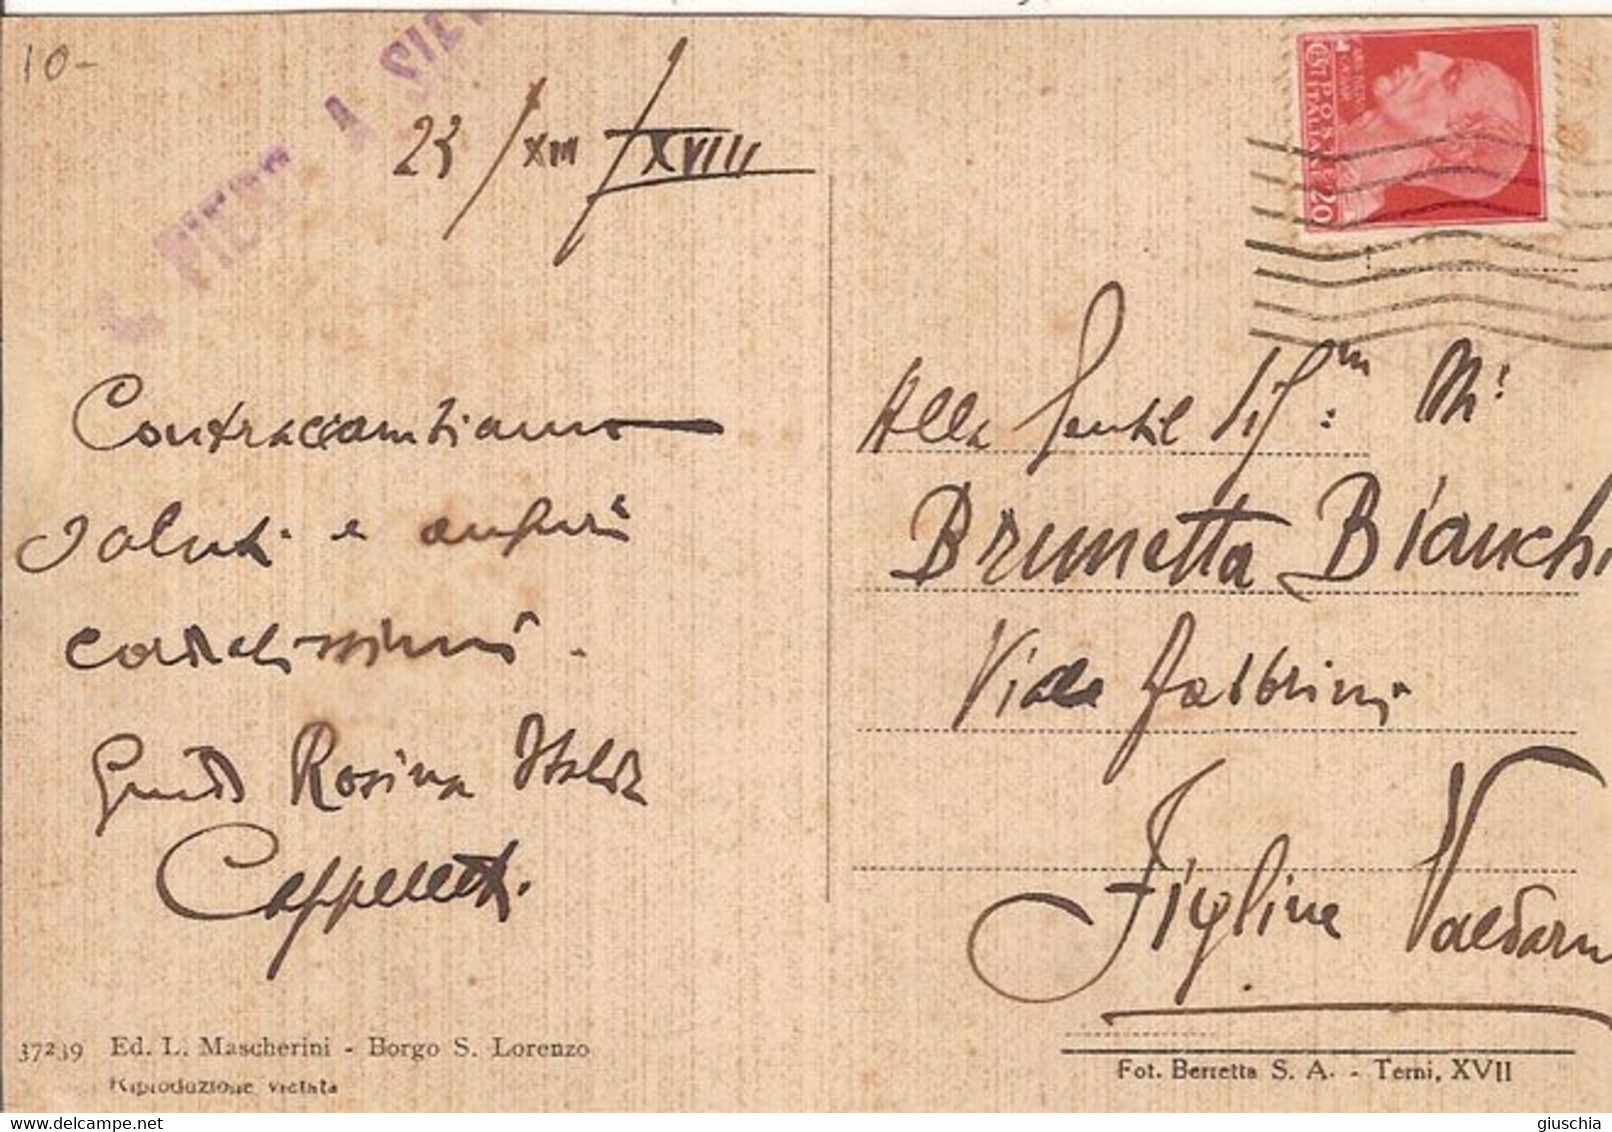 10-
S. PIERO A SIEV
23/XII/XVIII
POSTE ITALIANE
20
Contraccambiamo
saluti e auguri
cordialissimi.
Guido Rosina Italia
Cappelletti.
Alla Gentil Sig.:
Brunetta Bianchi
Viale Fabbrini
Figline Valdarno
37239 Ed. L. Mascherini - Borgo S. Lorenzo
Riproduzione vietata
Fot. Berretta S. A. - Terni, XVII
delcampe.net
giuschia